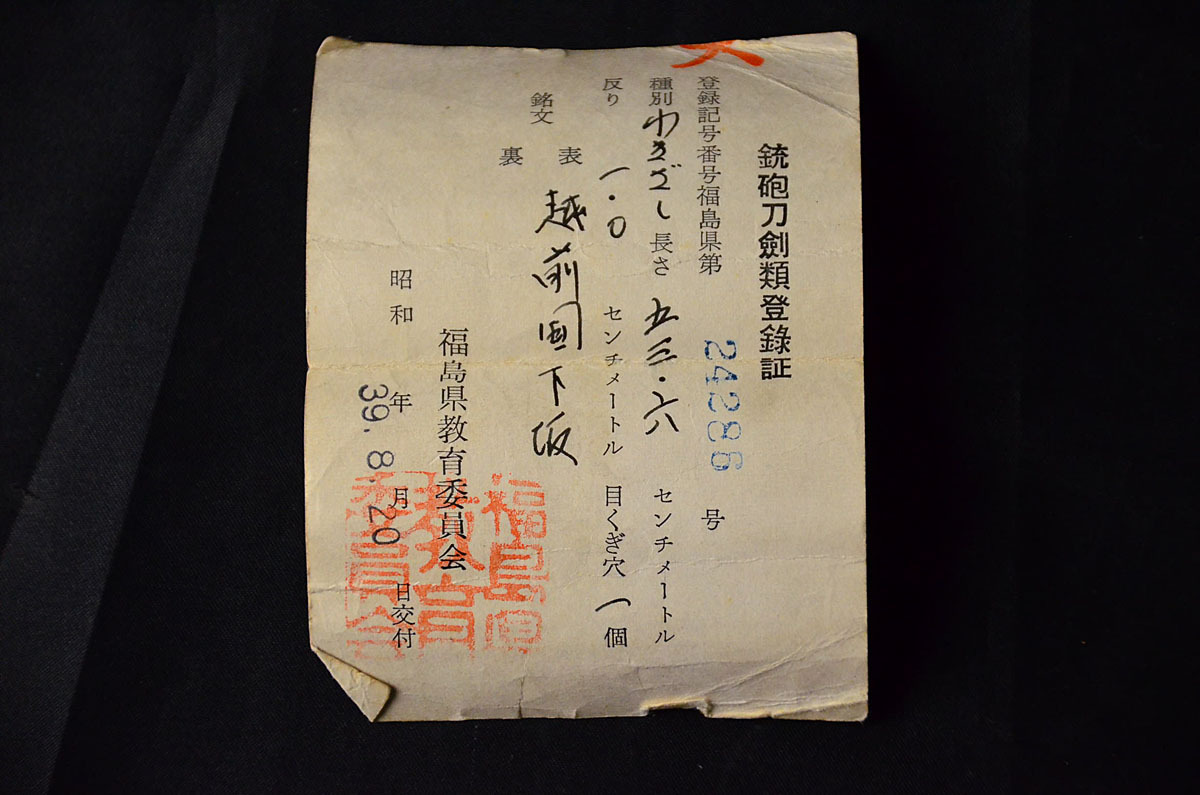 銃砲刀劍類登錄証
登録記号番号福島県第 24286 号
種別 わきざし 長さ 五三・六 センチメートル
反り 一・〇 センチメートル 目くぎ穴 一 個
銘文
表 越前国下坂
裏
福島県教育委員会
昭和 39 年 8. 月 20 日交付
福島県
教育
委員会